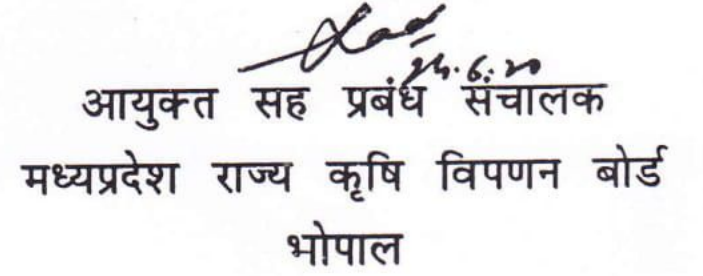 24.6.20
आयुक्त सह प्रबंध संचालक
मध्यप्रदेश राज्य कृषि विपणन बोर्ड
भोपाल